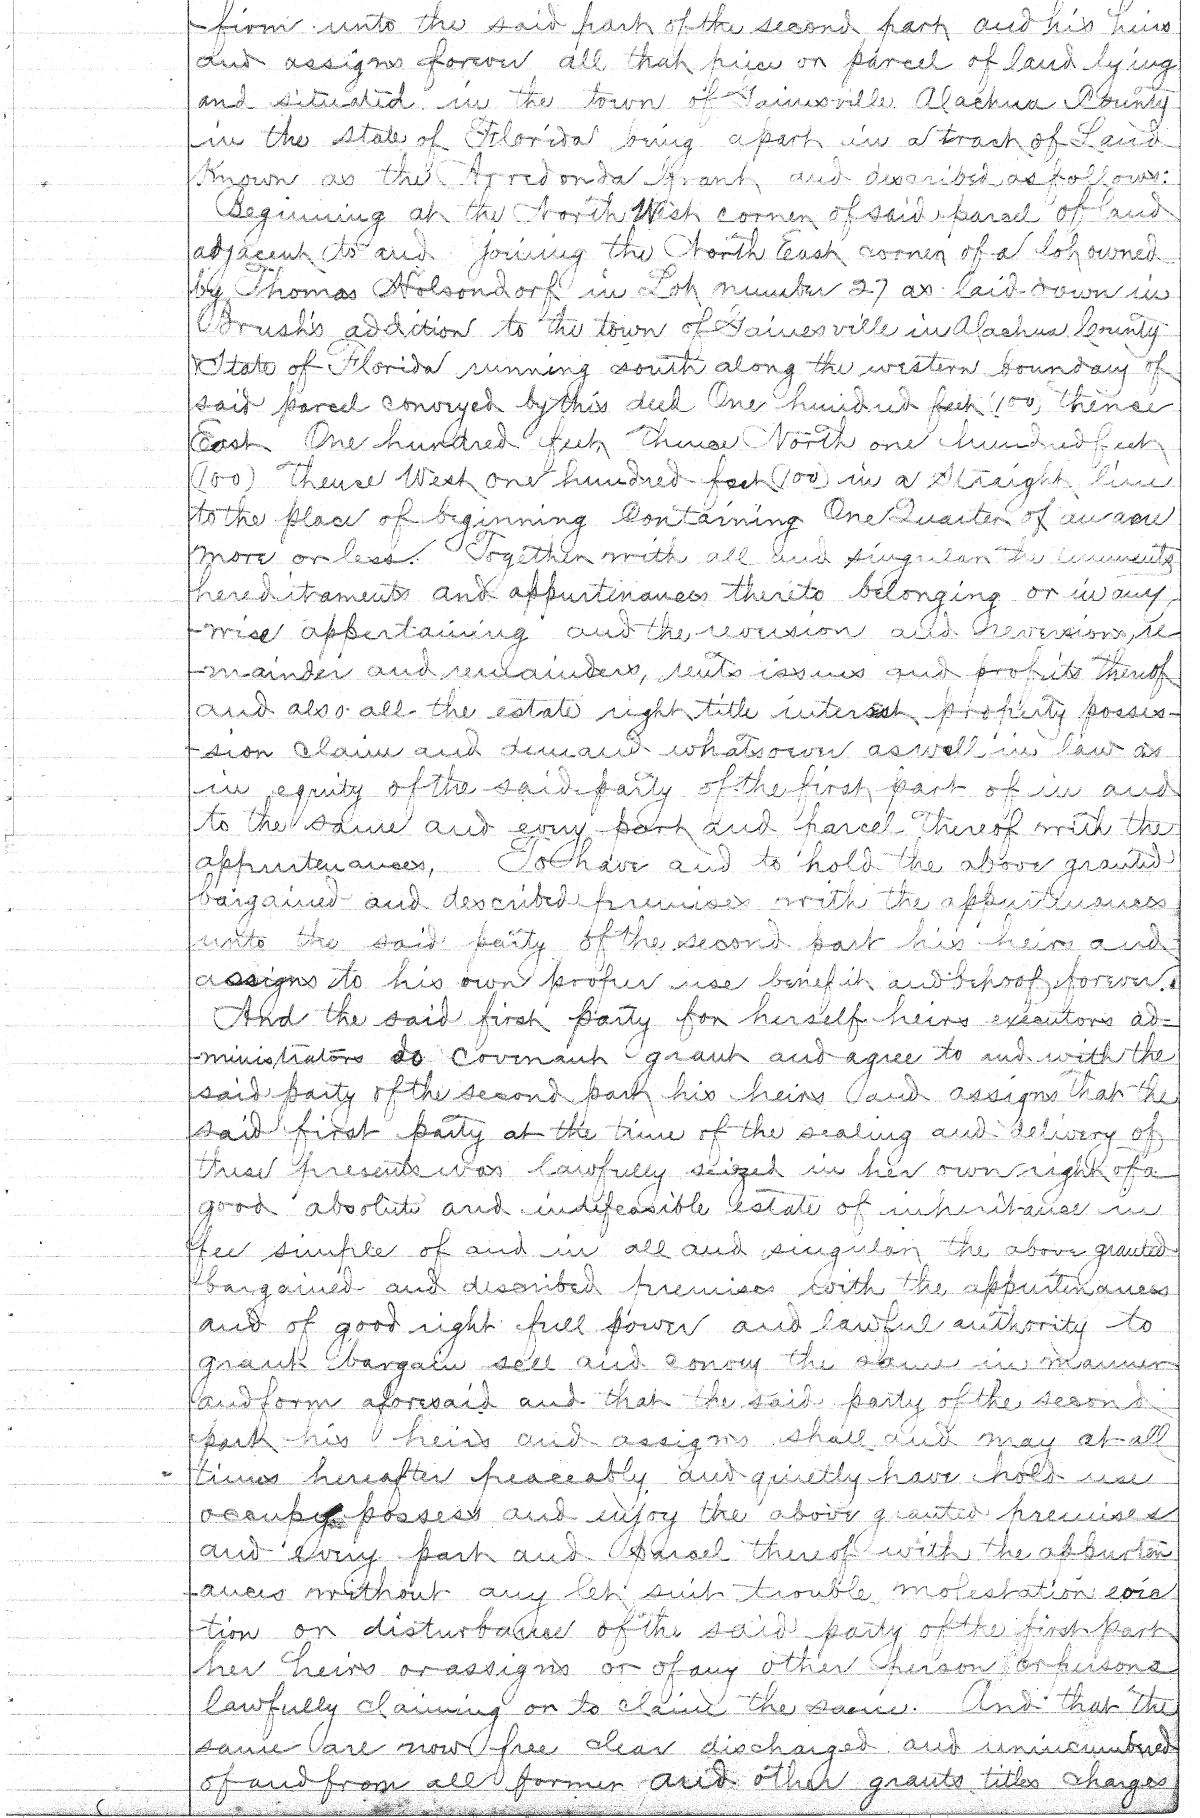 -firm unto the said part of the second part and his heirs
and assigns forever all that piece or parcel of land lying
and situated in the town of Gainesville Alachua County
in the state of Florida being apart in a track of Land
Known as the Arredonda Grant and described as follows:
Beginning at the North West corner of said parcel of land
adjacent to and joining the North East corner of a lot owned
by Thomas Holsondorf in Lot number 27 as laid down in
Brush's addition to the town of Gainesville in Alachua County
State of Florida running south along the western boundary of
said parcel conveyed by this deed One hundred feet (100) thence
East One hundred feet thence North one hundred feet
(100) thence West one hundred feet (100) in a Straight line
to the place of beginning Containing One Quarter of an acre
more or less. Together with all and singular the tenements
hereditaments and appurtinances thereto belonging or in any
-wise appertaining and the reversion and reversions, re
-mainder and remainders, rents issues and profits thereof
and also all the estate right title interest property posses-
-sion claim and demand whatsoever as well in law as
in equity of the said party of the first part of in and
to the same and every part and parcel thereof with the
appurtenances, To have and to hold the above granted
bargained and described premises with the appurtenances
unto the said party of the second part his heirs and
assigns to his own proper use benefit and behoof forever.
And the said first party for herself heirs executors ad-
-ministrators do covenant grant and agree to and with the
said party of the second part his heirs and assigns that the
said first party at the time of the sealing and delivery of
these presents was lawfully seized in her own right of a
good absolute and indefeasible estate of inheritance in
fee simple of and in all and singular the above granted
bargained and described premises with the appurtenances
and of good right full power and lawful authority to
grant bargain sell and convey the same in manner
and form aforesaid and that the said party of the second
part his heirs and assigns shall and may at all
times hereafter peaceably and quietly have hold use
occupy possess and enjoy the above granted premises
and every part and parcel thereof with the appurten
-ances without any let suit trouble molestation evic
-tion or disturbance of the said party of the first part
her heirs or assigns or of any other person or persons
lawfully claiming or to claim the same. And that the
same are now free clear discharged and unincumbered
of and from all former and other grants titles charges